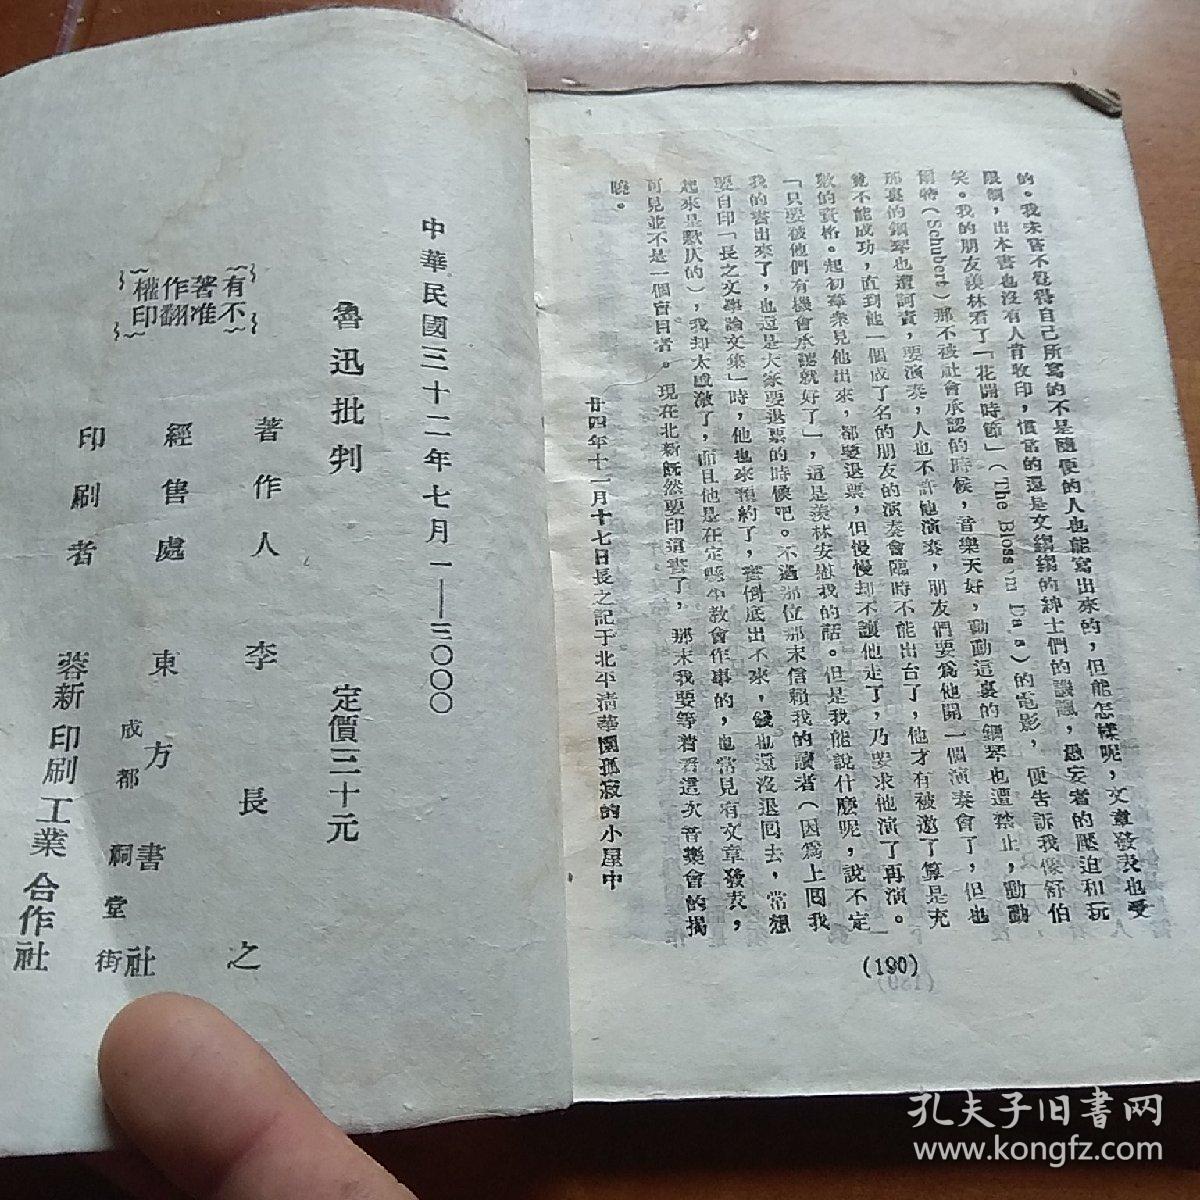 的。我未嘗不覺得自己所寫的不是隨便的人也能寫出來的，但能怎樣呢，文章發表也受
限制，出本書也沒有人肯收印，慣當的還是文縐縐的紳士們的譏諷，愚妄者的壓迫和玩
笑。我的朋友羨林看了「花開時節」(The Blossom Days)的電影，便告訴我像舒伯
爾特(Schubert)那不被社會承認的時候，音樂天好，動動這裏的鋼琴也遭禁止，動動
那裏的鋼琴也遭訶責，要演奏，人也不許他演奏，朋友們要爲他開一個演奏會了，但也
竟不能成功，直到他一個成了名的朋友的演奏會臨時不能出台了，他才有被邀了算是充
數的資格。起初羣衆見他出來，都要退票，但慢慢却不讓他走了，乃要求他演了再演。
「只要被他們有機會承認就好了」，這是羨林安慰我的話。但是我能說什麼呢，說不定
我的書出來了，也還是大家要退票的時候吧。不過那位那末信賴我的讀者（因爲上囘我
要自印「長之文學論文集」時，他也來預約了，書倒底出不來，錢也還沒退囘去，常想
起來是歉仄的），我却太感激了，而且他是在定縣平教會作事的，也常見有文章發表，
可見並不是一個盲目者。現在北新既然要印這書了，那末我要等着看這次音樂會的揭
曉。
廿四年十一月十七日長之記于北平清華園孤寂的小屋中
(190)
中華民國三十二年七月一——三〇〇〇
魯迅批判
定價三十元
有著作權
不准翻印
著作人 李長之
經售處 東方書社
成都祠堂街
印刷者 蓉新印刷工業合作社
孔夫子旧書网
www.kongfz.com